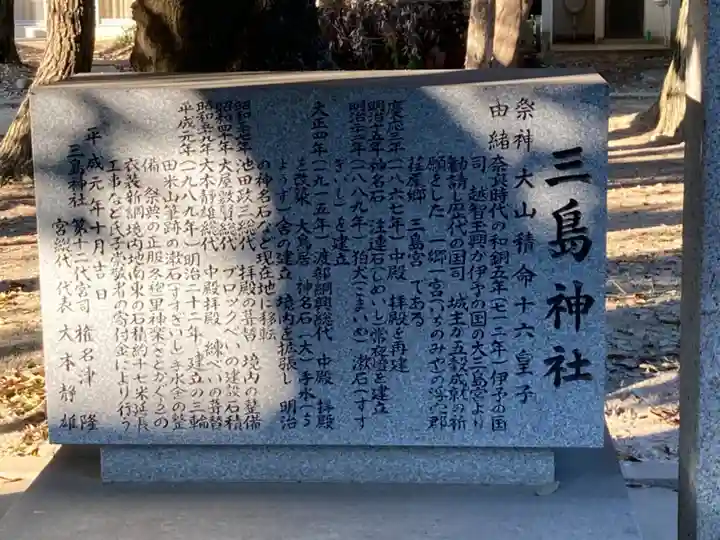 三島神社
祭神 大山積命 十六皇子
由緒 奈良時代の和銅五年(七一二年)伊予の国
司 越智玉興が伊予の国の大三島宮より
勧請し歴代の国司 城主が五穀成就の祈
願をした 一郷一宮(いちのみや)の浮穴郡
荏原郷 三島宮である
慶応三年(一八六七年)中殿 拝殿を再建
明治十五年 神名石 注連石(しめいし)常夜燈を建立
明治二十二年(一八八九年)狛犬(こまいぬ)漱石(すす
ぎいし)を建立
大正四年(一九一五年)渡部綱興総代 中殿 拝殿
を改築 大鳥居 神名石(大)手水(ち
ょうず)舎の建立 境内を拡張し 明治
の神名石など現在地に移転
池田政三総代 拝殿の葺替 境内の整備
昭和四十年 大屋敷賢総代 ブロックべいの建設 石積
昭和五十九年 大本静雄総代 中殿拝殿 練べいの葺替
平成元年(一九八九年)明治二十二年 建立の三輪
田米山筆跡の漱石(すすぎいし)手水舎の整
備 祭典の正服冬袍里神楽(さとかぐら)の
衣装新調境内地南東の石積約十七米延長
工事など氏子崇敬者の寄付金により行う
平成元年十月吉日
三島神社 第十二代宮司 権名津 隆
宮総代 代表 大本静雄